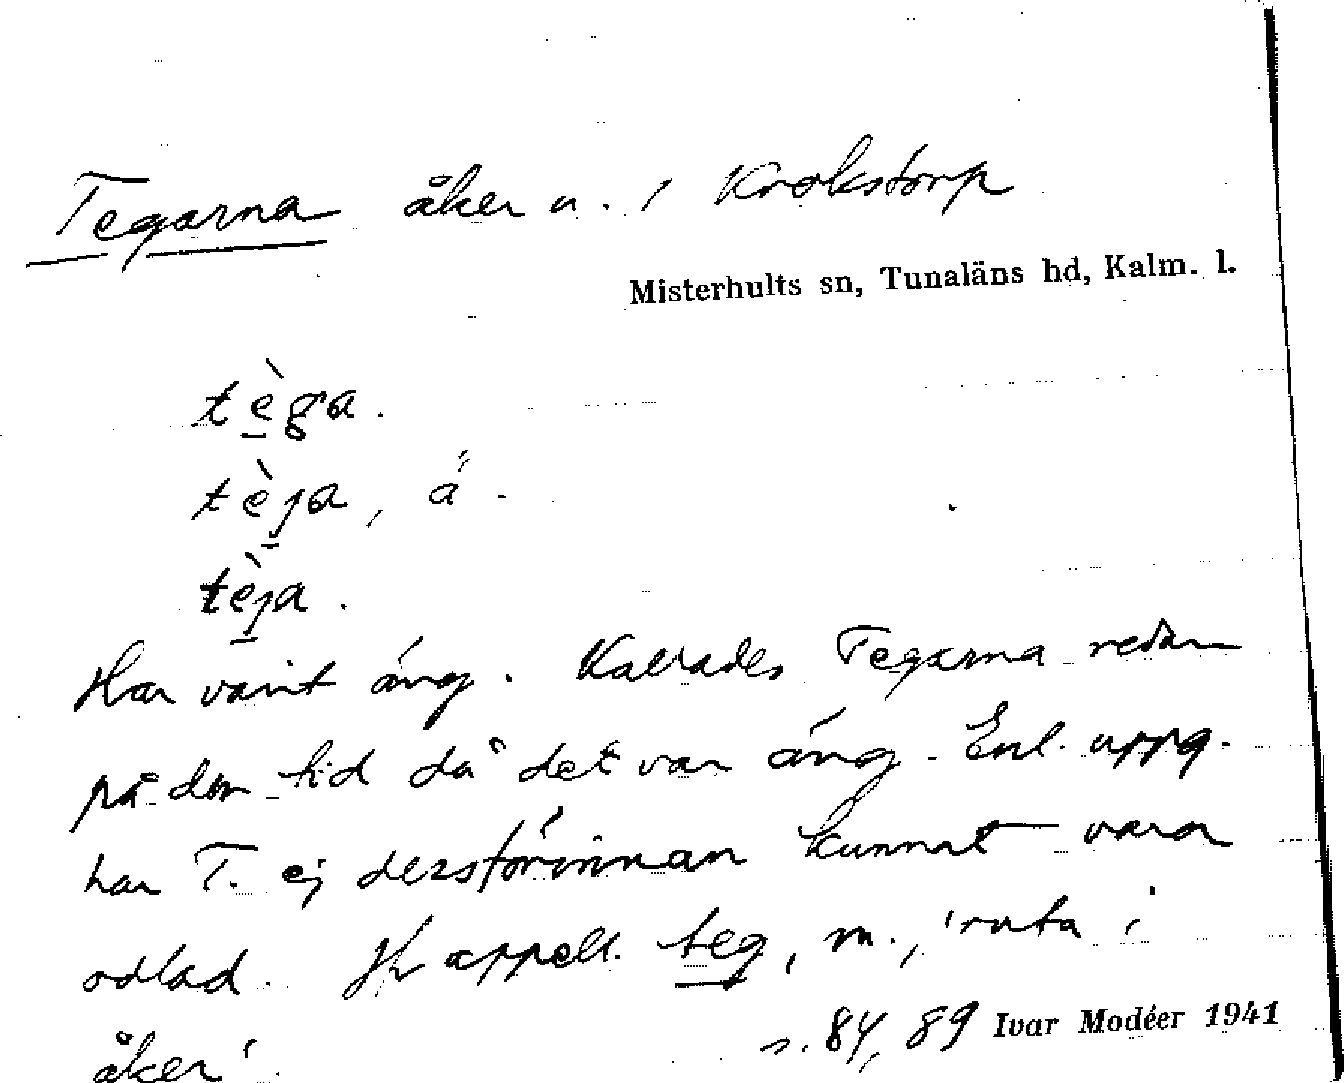 Tegarna åker u. i Krokstorp
Misterhults sn, Tunaläns hd, Kalm. l.
tèga.
tèja, å -
tèja.
Har varit äng. Kallades Tegarna redan
på den tid då det var äng. Enl. uppg.
har T. ej dessförinnan kunnat vara
odlad. Jfr appell. teg, m., 'ruta i
åker'.
s. 84, 89 Ivar Modéer 1941